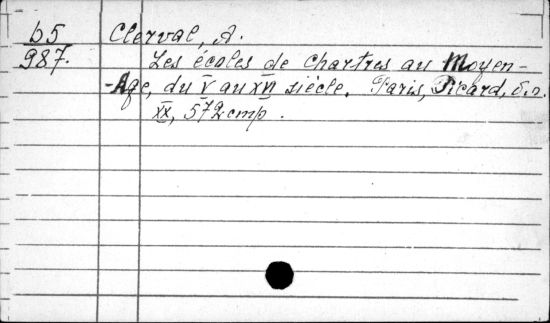 б5 Clerval, A.
987. Les écoles de Chartres au Moyen-
-Age, du V au XVI siècle. Paris, Picard, б.г.
XX, 572 стр.